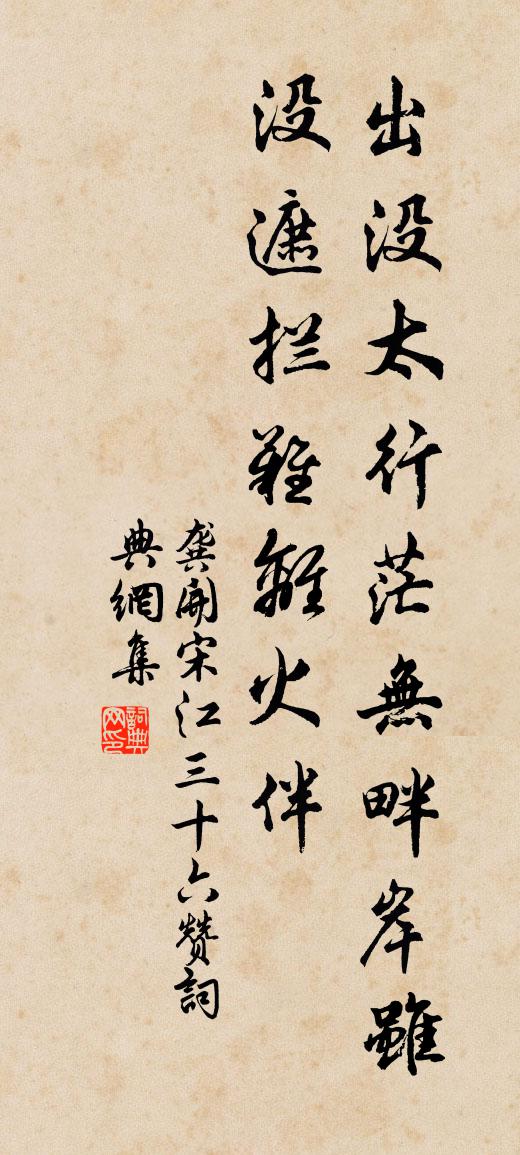 出没太行茫無畔岸雖
没遮拦難離火伴
龔開宋江三十六贊詞
典網集
詞典网印